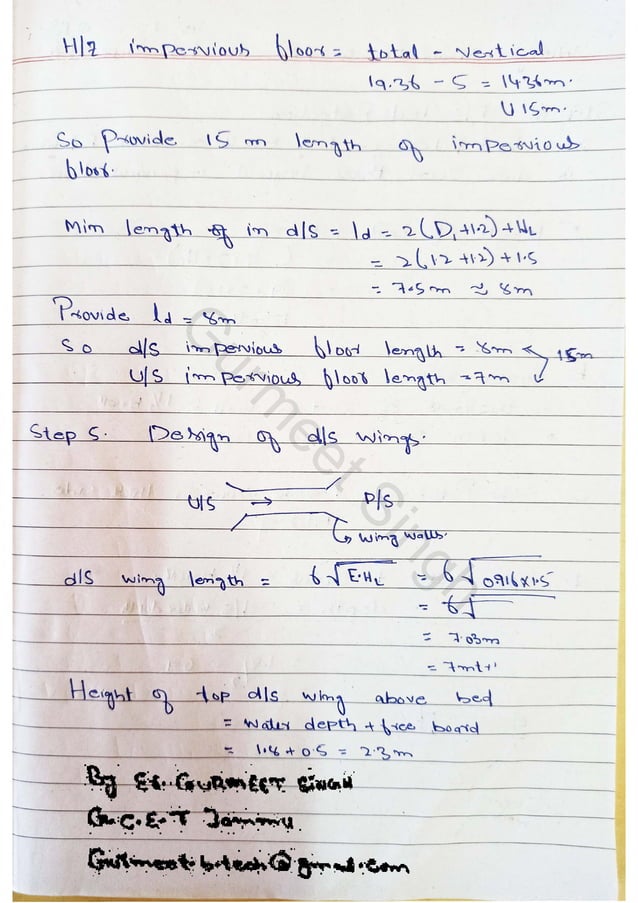 H/z impervious floor = total - vertical
19.36 - 5 = 1436m.
U 15m.
So Provide 15 m length of impervious
floor.
Min length of in d/s = ld = 2(D, +1.2) + HL
= 2(12 +1.2) + 1.5
= 7.5m ≈ 8m
Provide ld = 8m
So d/s impervious floor length = 8m
15m
U/s impervious floor length = 7m
Step 5. Design of d/s wings.
U/S → D/S
↳ wing walls.
d/s wing length = 6√E.HL = 6√0.916x1.5
= 6√
= 7.03m
= 7mt
Height of top d/s wing above bed
= water depth + free board
= 1.8 + 0.5 = 2.3m
By Er. GURMEET SINGH
G.C.E.T Jammu.
Gurmeet.b.tech@gmail.com
Gurmeet Singh